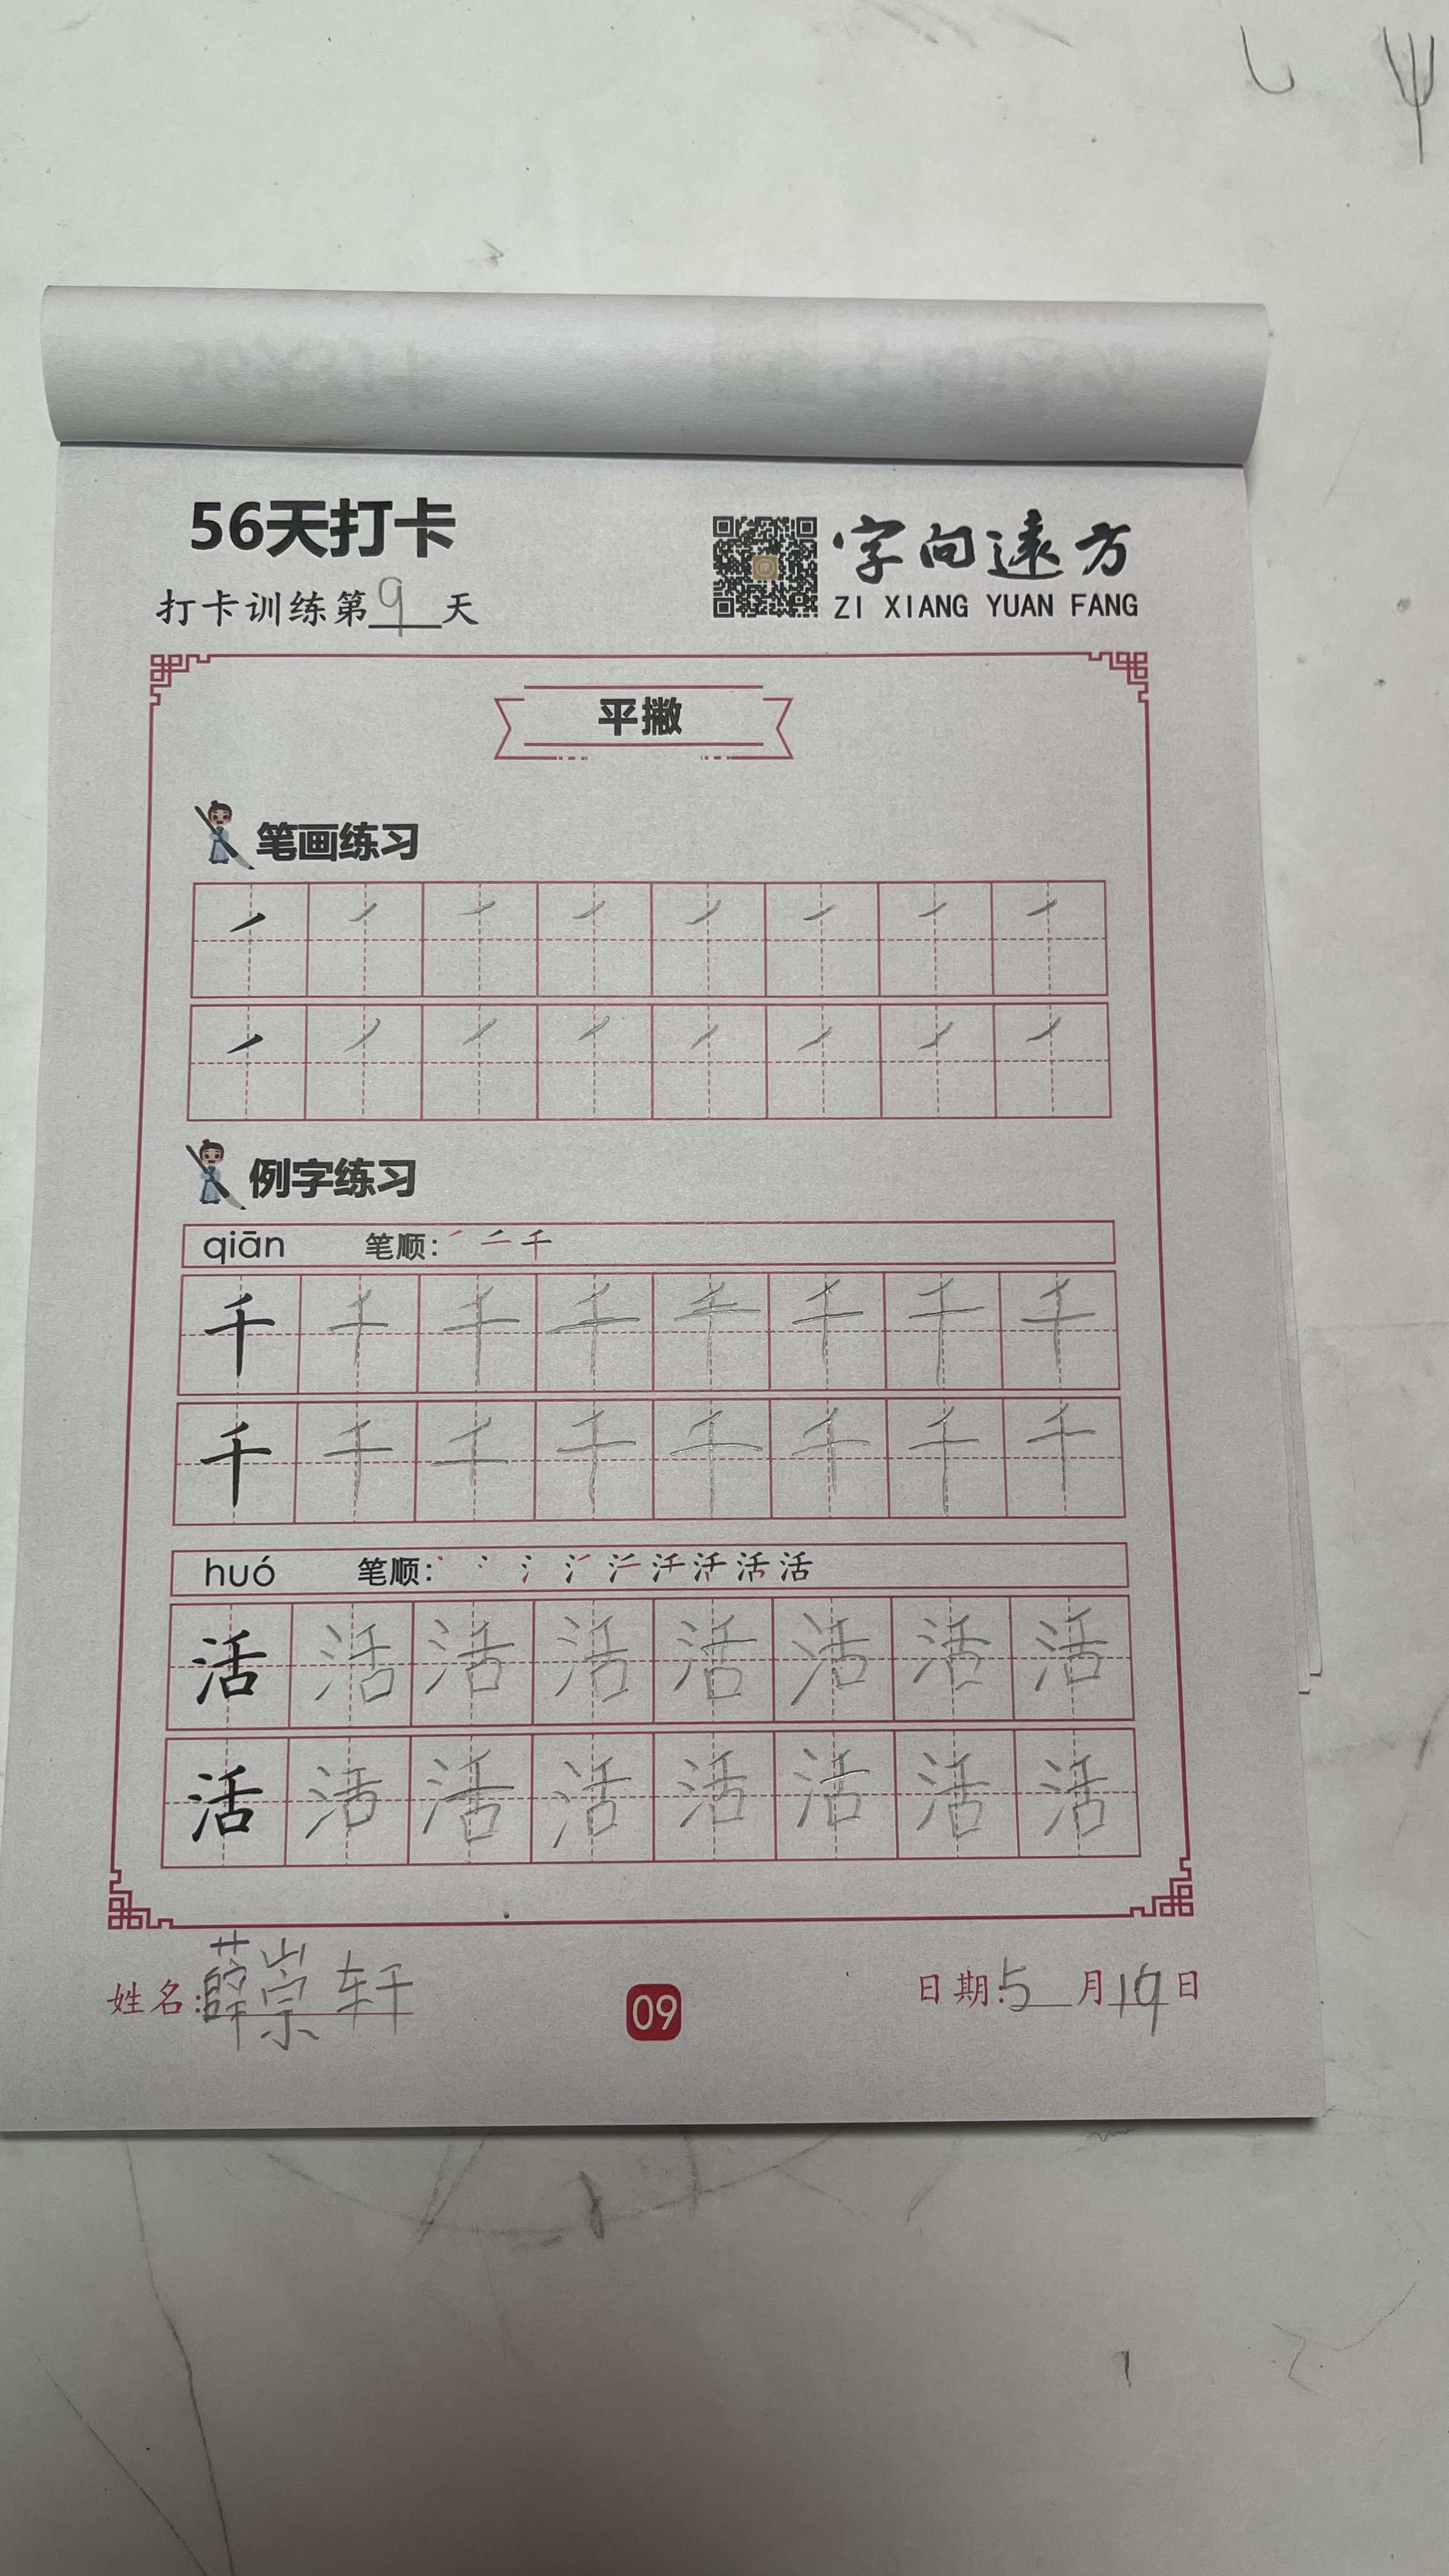 56天打卡
字向远方
打卡训练第9天
ZI XIANG YUAN FANG
平撇
笔画练习
例字练习
qiān 笔顺: 丿 二 千
千 千 千 千 千 千 千 千
千 千 千 千 千 千 千 千
huó 笔顺: 活 活
活 活 活 活 活 活 活 活
活 活 活 活 活 活 活 活
姓名:薛崇轩 09 日期:5月19日